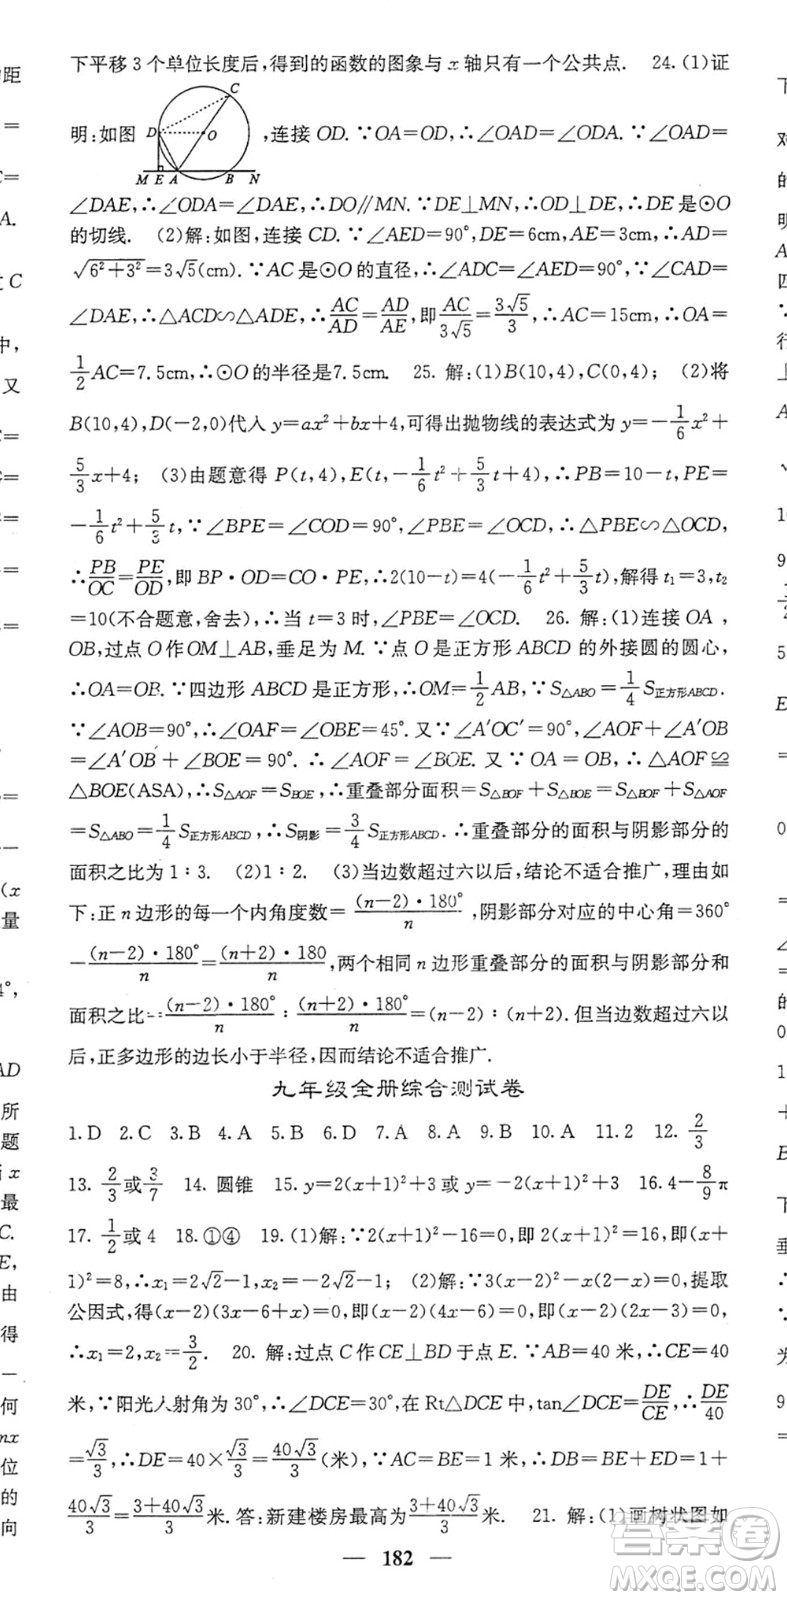 下平移3个单位长度后,得到的函数的图象与x轴只有一个公共点. 24.(1)证
明:如图 ,连接OD.∵OA=OD,∴∠OAD=∠ODA.∵∠OAD=
C
D
O
M E A B N
∠DAE,∴∠ODA=∠DAE,∴DO∥MN.∵DE⊥MN,∴OD⊥DE,∴DE是⊙O
的切线. (2)解:如图,连接CD.∵∠AED=90°,DE=6cm,AE=3cm,∴AD=
√(6²+3²)=3√5(cm).∵AC是⊙O的直径,∴∠ADC=∠AED=90°,∵∠CAD=
∠DAE,∴△ACD∽△ADE,∴AC/AD=AD/AE,即AC/3√5=3√5/3,∴AC=15cm,∴OA=
1/2AC=7.5cm,∴⊙O的半径是7.5cm. 25. 解:(1)B(10,4),C(0,4); (2)将
B(10,4),D(-2,0)代入y=ax²+bx+4,可得出抛物线的表达式为y=-1/6x²+
5/3x+4; (3)由题意得P(t,4),E(t,-1/6t²+5/3t+4),∴PB=10-t,PE=
-1/6t²+5/3t,∵∠BPE=∠COD=90°,∠PBE=∠OCD,∴△PBE∽△OCD,
∴PB/OC=PE/OD,即BP·OD=CO·PE,∴2(10-t)=4(-1/6t²+5/3t),解得t₁=3,t₂
=10(不合题意,舍去),∴当t=3时,∠PBE=∠OCD. 26. 解:(1)连接OA,
OB,过点O作OM⊥AB,垂足为M.∵点O是正方形ABCD的外接圆的圆心,
∴OA=OB.∵四边形ABCD是正方形,∴OM=1/2AB,∵S△ABO=1/4S正方形ABCD.
∵∠AOB=90°,∴∠OAF=∠OBE=45°.又∵∠A′OC′=90°,∠AOF+∠A′OB
=∠A′OB+∠BOE=90°.∴∠AOF=∠BOE.又∵OA=OB,∴△AOF≌
△BOE(ASA),∴S△AOF=S△BOE,∴重叠部分面积=S△BOF+S△BOE=S△BOF+S△AOF
=S△ABO=1/4S正方形ABCD,∴S阴影=3/4S正方形ABCD.∴重叠部分的面积与阴影部分的
面积之比为1∶3. (2)1∶2. (3)当边数超过六以后,结论不适合推广,理由如
下:正n边形的每一个内角度数=(n-2)·180°/n,阴影部分对应的中心角=360°
-(n-2)·180°/n=(n+2)·180/n,两个相同n边形重叠部分的面积与阴影部分和
面积之比=(n-2)·180°/n∶(n+2)·180°/n=(n-2)∶(n+2).但当边数超过六以
后,正多边形的边长小于半径,因而结论不适合推广.
九年级全册综合测试卷
1.D 2.C 3.B 4.A 5.B 6.D 7.A 8.A 9.B 10.A 11.2 12.2/3
13.2/3或3/7 14. 圆锥 15.y=2(x+1)²+3或y=-2(x+1)²+3 16.4-8/9π
17.1/2或4 18.①④ 19.(1)解:∵2(x+1)²-16=0,即2(x+1)²=16,即(x+
1)²=8,∴x₁=2√2-1,x₂=-2√2-1; (2)解:∵3(x-2)+x(x-2)=0,提取
公因式,得(x-2)(3x-6+x)=0,即(x-2)(4x-6)=0,即2(x-2)(2x-3)=0,
∴x₁=2,x₂=3/2. 20. 解:过点C作CE⊥BD于点E.∵AB=40米,∴CE=40
米,∵阳光入射角为30°,∴∠DCE=30°,在Rt△DCE中,tan∠DCE=DE/CE,∴DE/40
=√3/3,∴DE=40×√3/3=40√3/3(米),∵AC=BE=1米,∴DB=BE+ED=1+
40√3/3=3+40√3/3米.答:新建楼房最高为3+40√3/3米. 21. 解:(1)画树状图如
— 182 —
答案圈
MXQE.COM